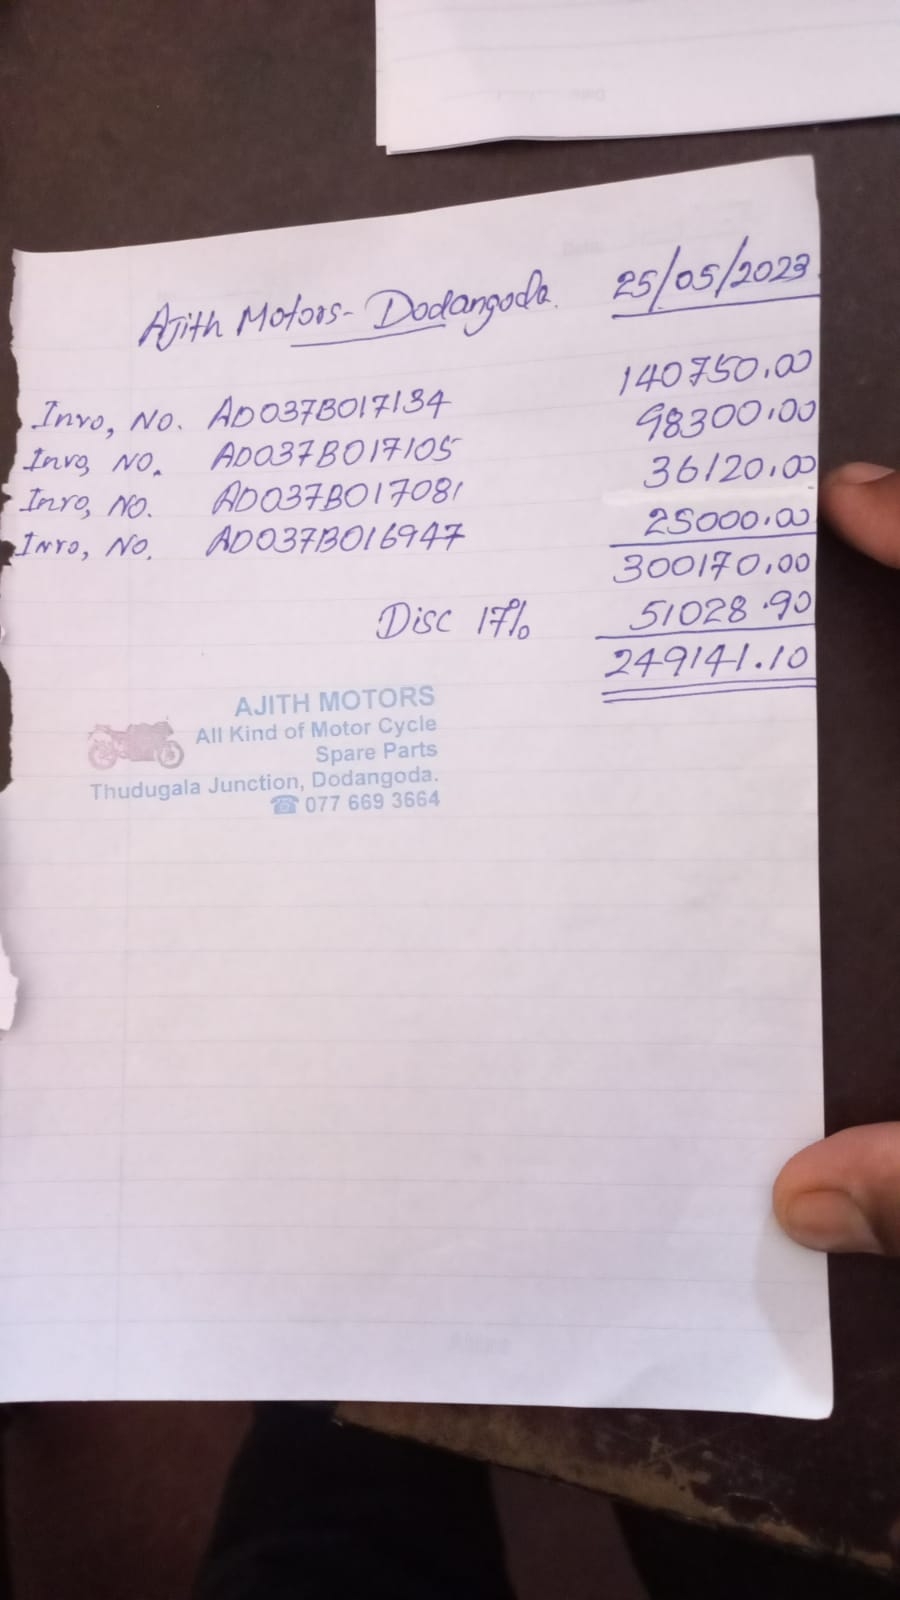 Ajith Motors - Dodangoda. 25/05/2023
Invo, No. AD037B017134 140750.00
Invo, No. AD037B017105 98300.00
Invo, No. AD037B017081 36120.00
Invo, No. AD037B016947 25000.00
300170.00
Disc 17% 51028.90
249141.10
AJITH MOTORS
All Kind of Motor Cycle
Spare Parts
Thudugala Junction, Dodangoda.
☎ 077 669 3664